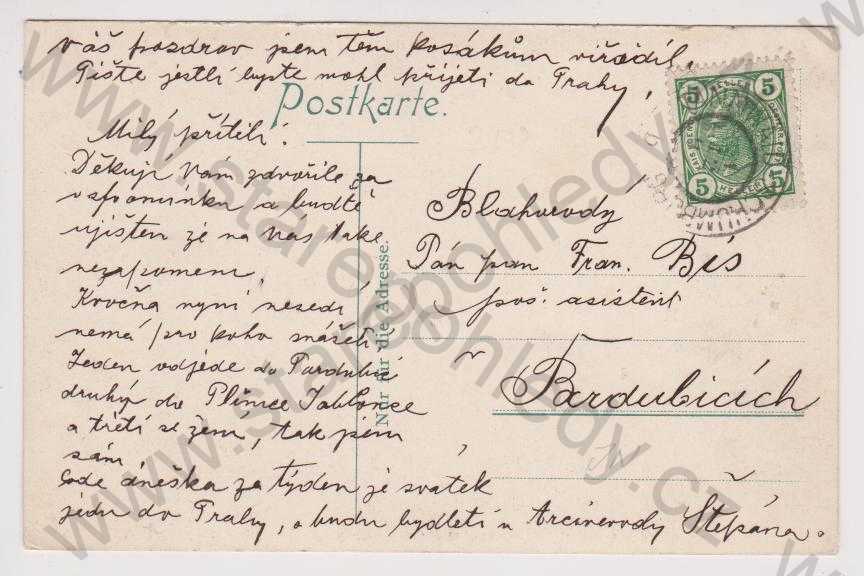 váš pozdrav jsem těm kosákům vyřídil,
Pište jestli byste mohl přijeti do Prahy,
Postkarte.
Milý příteli!
Děkuji Vám zdvořile za
vzpomínku a buďte
ujištěn že na Vás také
nezapomenu,
Kvočna nyní nesedí
nemá pro koho snášeti
Jeden odjede do Pardubic
druhý do Jablonce
a třetí se žení, tak jsem
sám
ode dneška za týden je svátek
jedu do Prahy, a budu bydleti u Arcivevody Štěpána.
Nur für die Adresse.
Blahorody
Pán pan Fran. Bés
poš. asistent
v
Pardubicích
5 HELLER 5
5 HELLER 5
www.starepohledy.cz